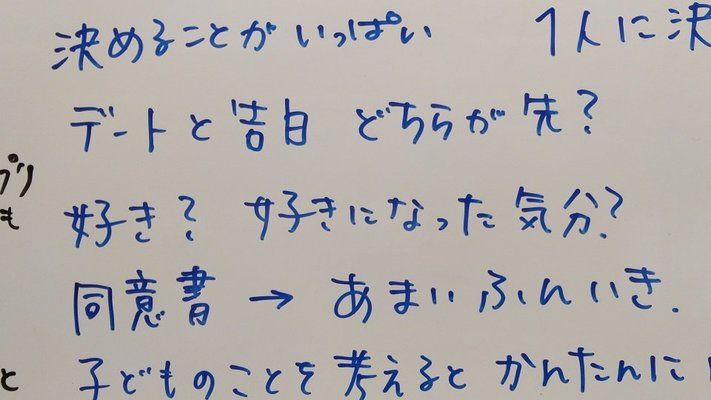 決めることがいっぱい 1人に決
デートと告白 どちらが先?
プリ
も
好き? 好きになった気分?
同意書 → あまいふんいき.
と 子どものことを考えると かんたんに